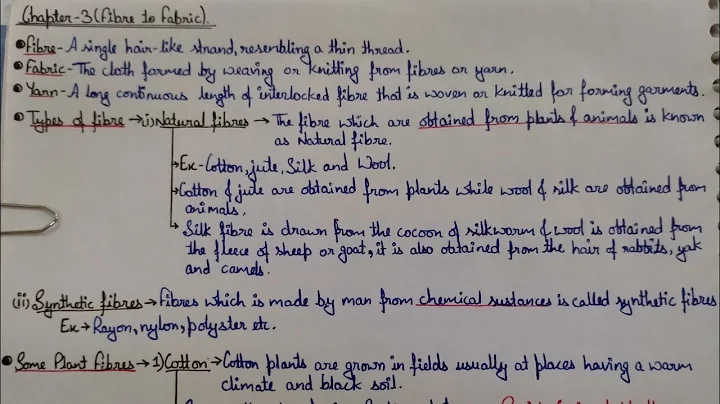 Chapter-3 (Fibre to Fabric).
• Fibre - A single hair-like strand, resembling a thin thread.
• Fabric - The cloth formed by weaving or knitting from fibres or yarn.
• Yarn - A long continuous length of interlocked fibre that is woven or knitted for forming garments.
• Types of fibre → i) Natural fibres → The fibre which are obtained from plants & animals is known
as Natural fibre.
→ Ex - Cotton, jute, Silk and Wool.
→ Cotton & jute are obtained from plants while wool & silk are obtained from
animals.
→ Silk fibre is drawn from the cocoon of silkworm & wool is obtained from
the fleece of sheep or goat, it is also obtained from the hair of rabbits, yak
and camels.
(ii) Synthetic fibres → Fibres which is made by man from chemical sustances is called synthetic fibres
Ex → Rayon, nylon, polyster etc.
• Some Plant Fibres → 1) Cotton → Cotton plants are grown in fields usually at places having a warm
climate and black soil.